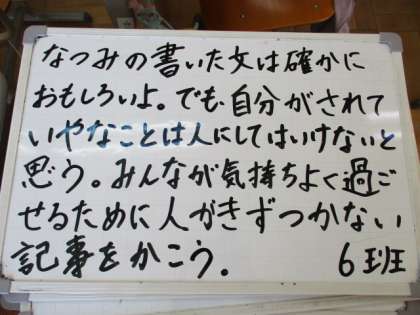 なつみの書いた文は確かに
おもしろいよ。でも自分がされて
いやなことは人にしてはいけないと
思う。みんなが気持ちよく過ご
せるために人がきずつかない
記事をかこう。 6班